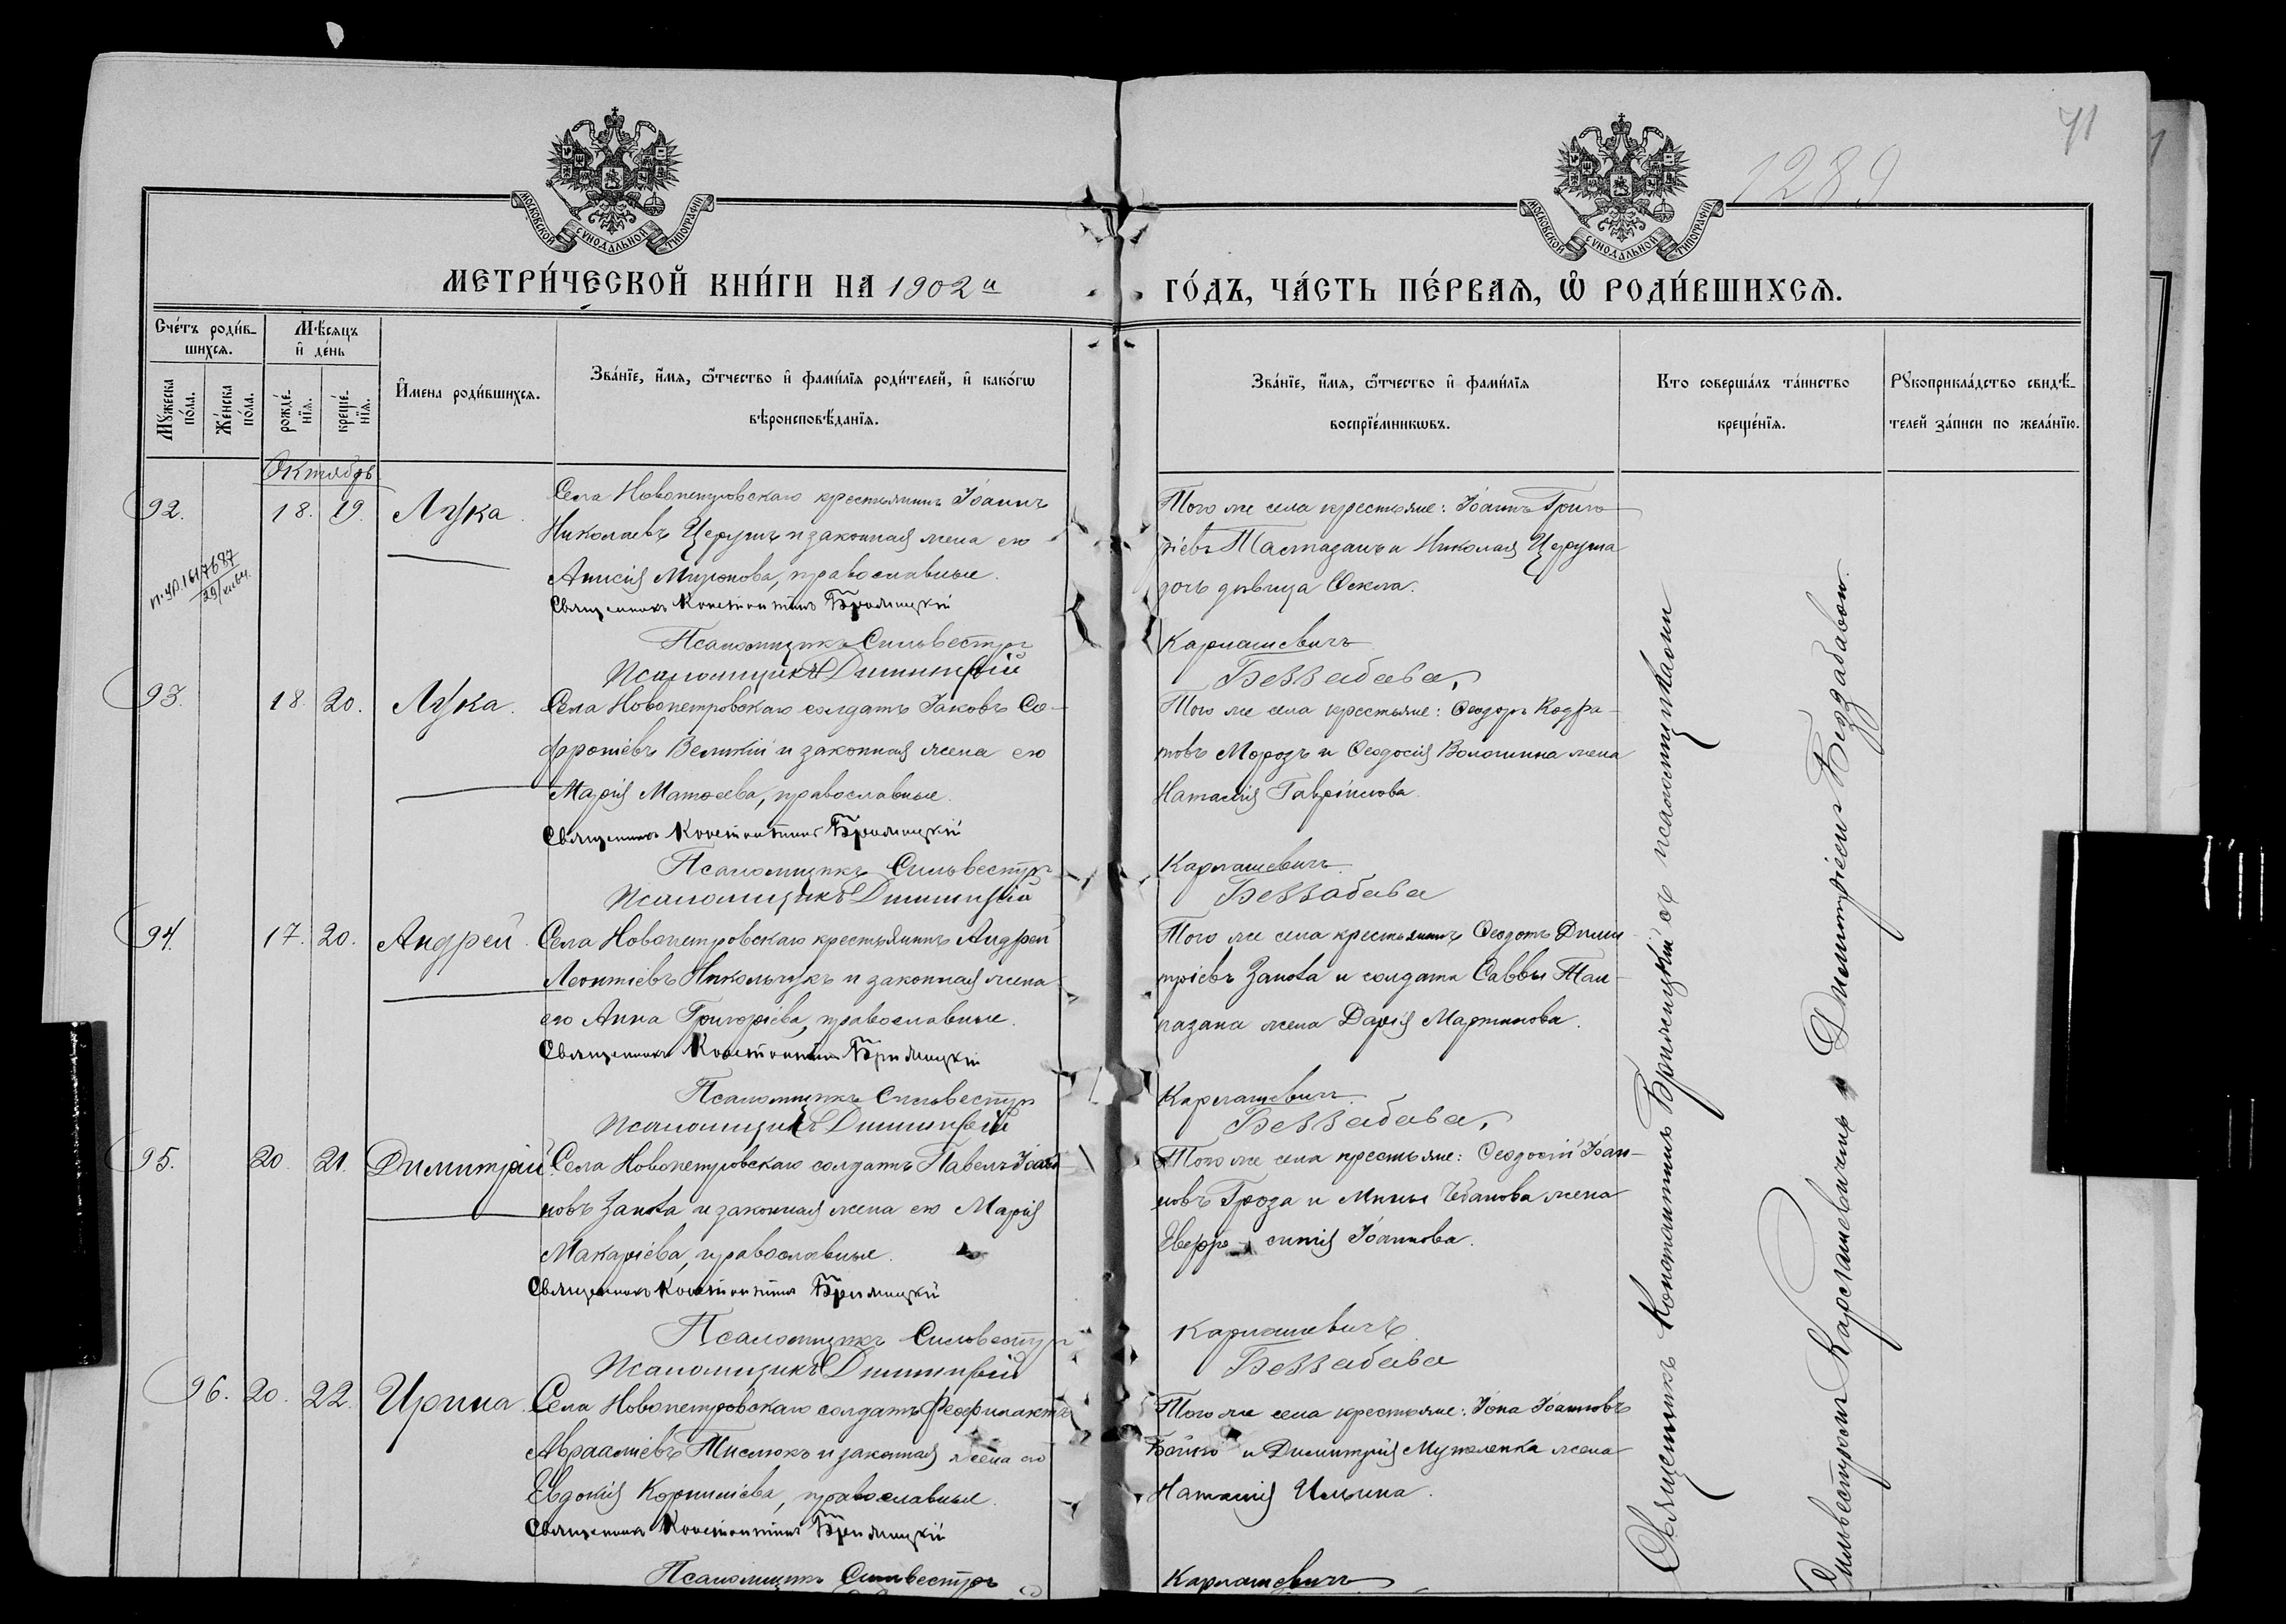 71
1289
МОСКОВСКОЙ СѴНОДАЛЬНОЙ ТИПОГРАФІИ
МОСКОВСКОЙ СѴНОДАЛЬНОЙ ТИПОГРАФІИ
МЕТРИ́ЧЕСКОЙ КНИ́ГИ НА 1902й
ГО́ДЪ, ЧА́СТЬ ПЕ́РВАѦ, Ѽ РОДИ́ВШИХСѦ.
Сче́тъ роди́в-
шихсѧ.
Мꙋ́жеска
по́ла.
Же́нска
по́ла.
Мѣ́сяцъ
и҆ де́нь
рожде́-
нїѧ.
креще́-
нїѧ.
И҆мена роди́вшихсѧ.
Зва́нїе, и҆́мѧ, ѻ҆́тчество и҆ фами́лїѧ роди́телей, и҆ како́гѡ
вѣроисповѣ́данїѧ.
Зва́нїе, и҆́мѧ, ѻ҆́тчество и҆ фами́лїѧ
воспрїе́мникѡвъ.
Кто соверша́лъ та́инство
креще́нїѧ.
Рꙋкоприкла́дство свидѣ́-
телей за́писи по жела́нїю.
Октябрь
92. 18. 19. Лука.
Села Новопетровскаго крестьянинъ Іоаннъ
Николаевъ Церушъ и законная жена его
Анисія Миронова, православные.
Священникъ Константинъ Бриляицкій
Псаломщикъ Сильвестръ
Псаломщикъ Димитрій
Того же села крестьяне: Іоаннъ Григо-
ріевъ и Николая Церуша
дочь дѣвица Ѳекла.
Кармашевичъ
Беззабава.
93. 18. 20. Лука.
Села Новопетровскаго солдатъ Іаковъ Со-
фроніевъ Великій и законная жена его
Марія Матѳеева, православные.
Священникъ Константинъ Бриляицкій
Псаломщикъ Сильвестръ
Псаломщикъ Димитрій
Того же села крестьяне: Ѳеодоръ Кодра-
товъ Морозъ и Ѳеодосія Волошина жена
Наталія Гавріилова.
Кармашевичъ
Беззабава
94. 17. 20. Андрей.
Села Новопетровскаго крестьянинъ Андрей
Леонтіевъ Никольчукъ и законная жена
его Анна Григоріева, православные.
Священникъ Константинъ Бриляицкій
Псаломщикъ Сильвестръ
Псаломщикъ Димитрій
Того же села крестьянинъ Ѳеодотъ Дими-
тріевъ Запока и солдата Саввы
жена Дарія Мартинова.
Кармашевичъ
Беззабава.
95. 20. 21. Димитрій.
Села Новопетровскаго солдатъ Павелъ Іоан-
новъ Запока и законная жена его Марія
Макаріева, православные.
Священникъ Константинъ Бриляицкій
Псаломщикъ Сильвестръ
Псаломщикъ Димитрій
Того же села крестьяне: Ѳеодосій Іоан-
новъ Гроза и Мины Чебанова жена
Евфро-синія Іоаннова.
Кармашевичъ
Беззабава
96. 20. 22. Ирина.
Села Новопетровскаго солдатъ Феофилактъ
Авраамiевъ Тислюкъ и законная жена его
Евдокія Корниліева, православные.
Священникъ Константинъ Бриляицкій
Псаломщикъ Сильвестръ
Того же села крестьяне: Іона Іоанновъ
Бойко и Димитрія жена
Наталія Ильина.
Кармашевичъ
Священникъ Константинъ Бриляицкій съ псаломщиками
Сильвестромъ Кармашевичемъ и Димитріемъ Беззабавою.